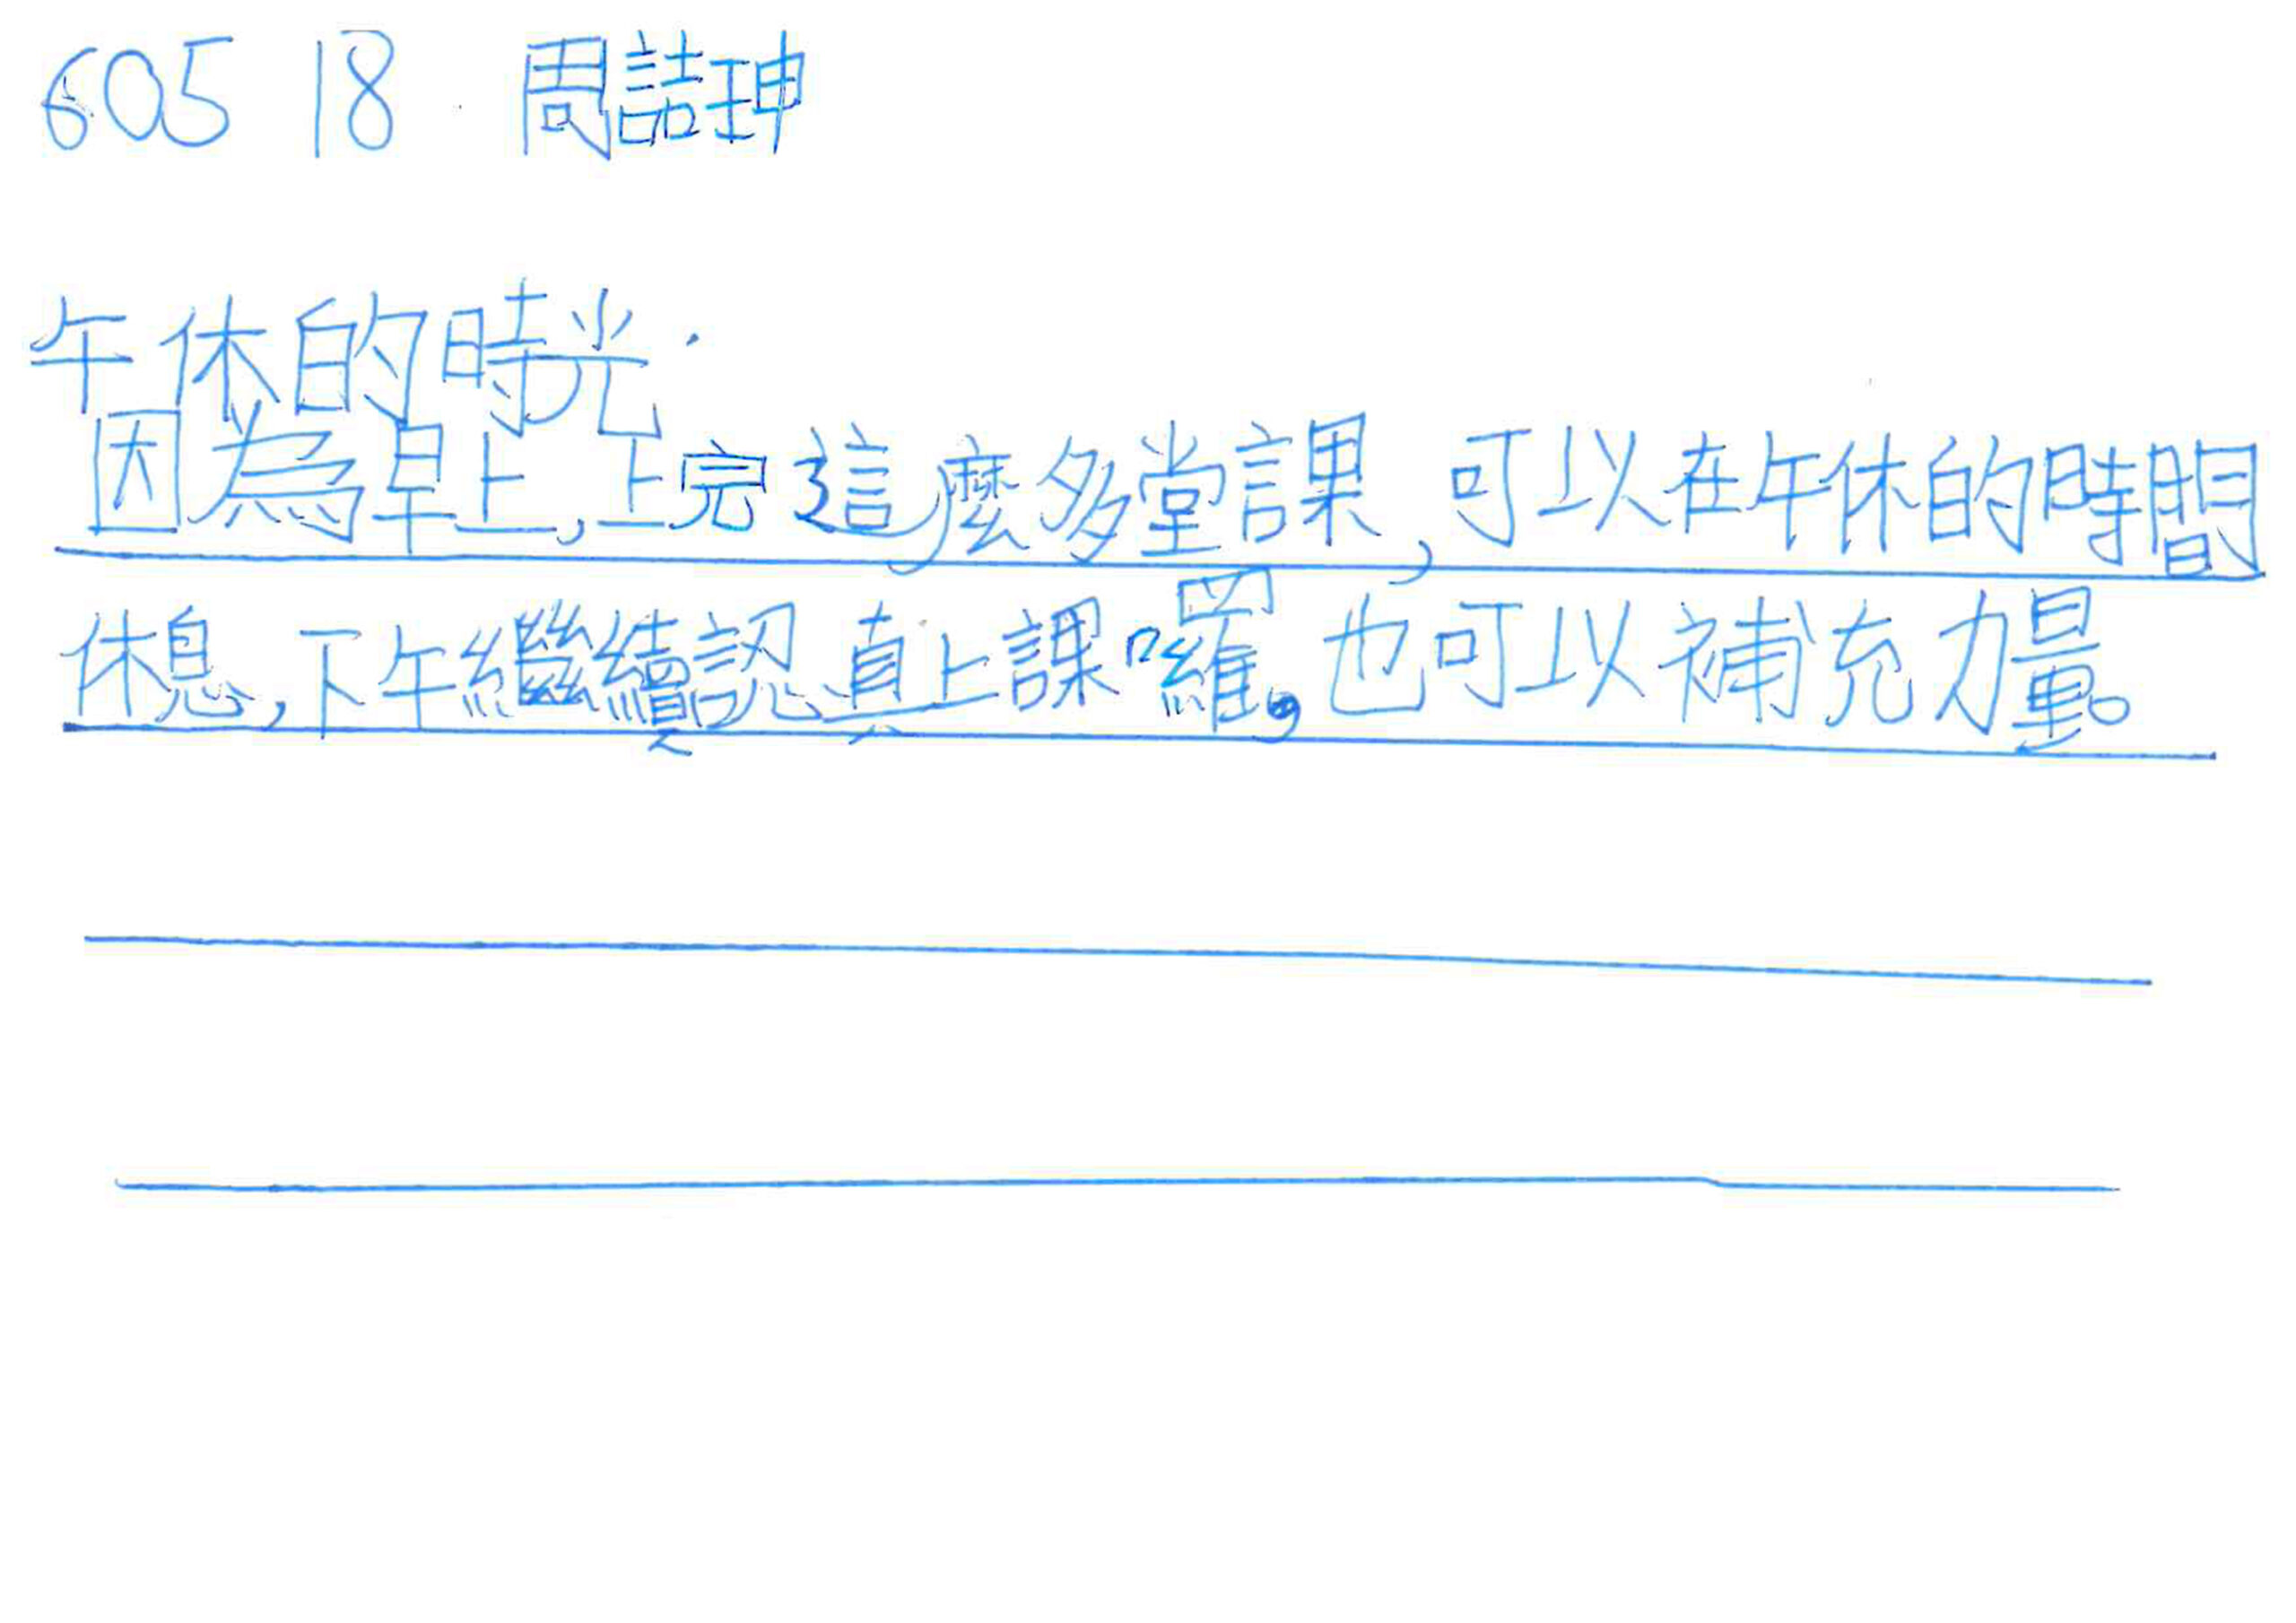 605 18 周詰珅
午休的時光.
因為早上,上完這麼多堂課,可以在午休的時間
休息,下午繼續認真上課囉,也可以補充力量。